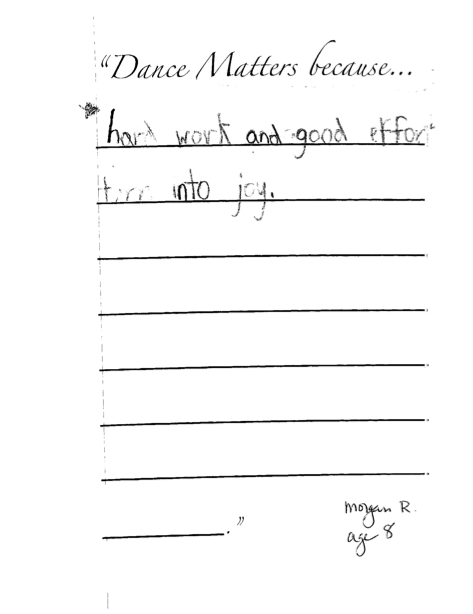 "Dance Matters because...
hard work and good effort
turn into joy.
."
Morgan R.
age 8